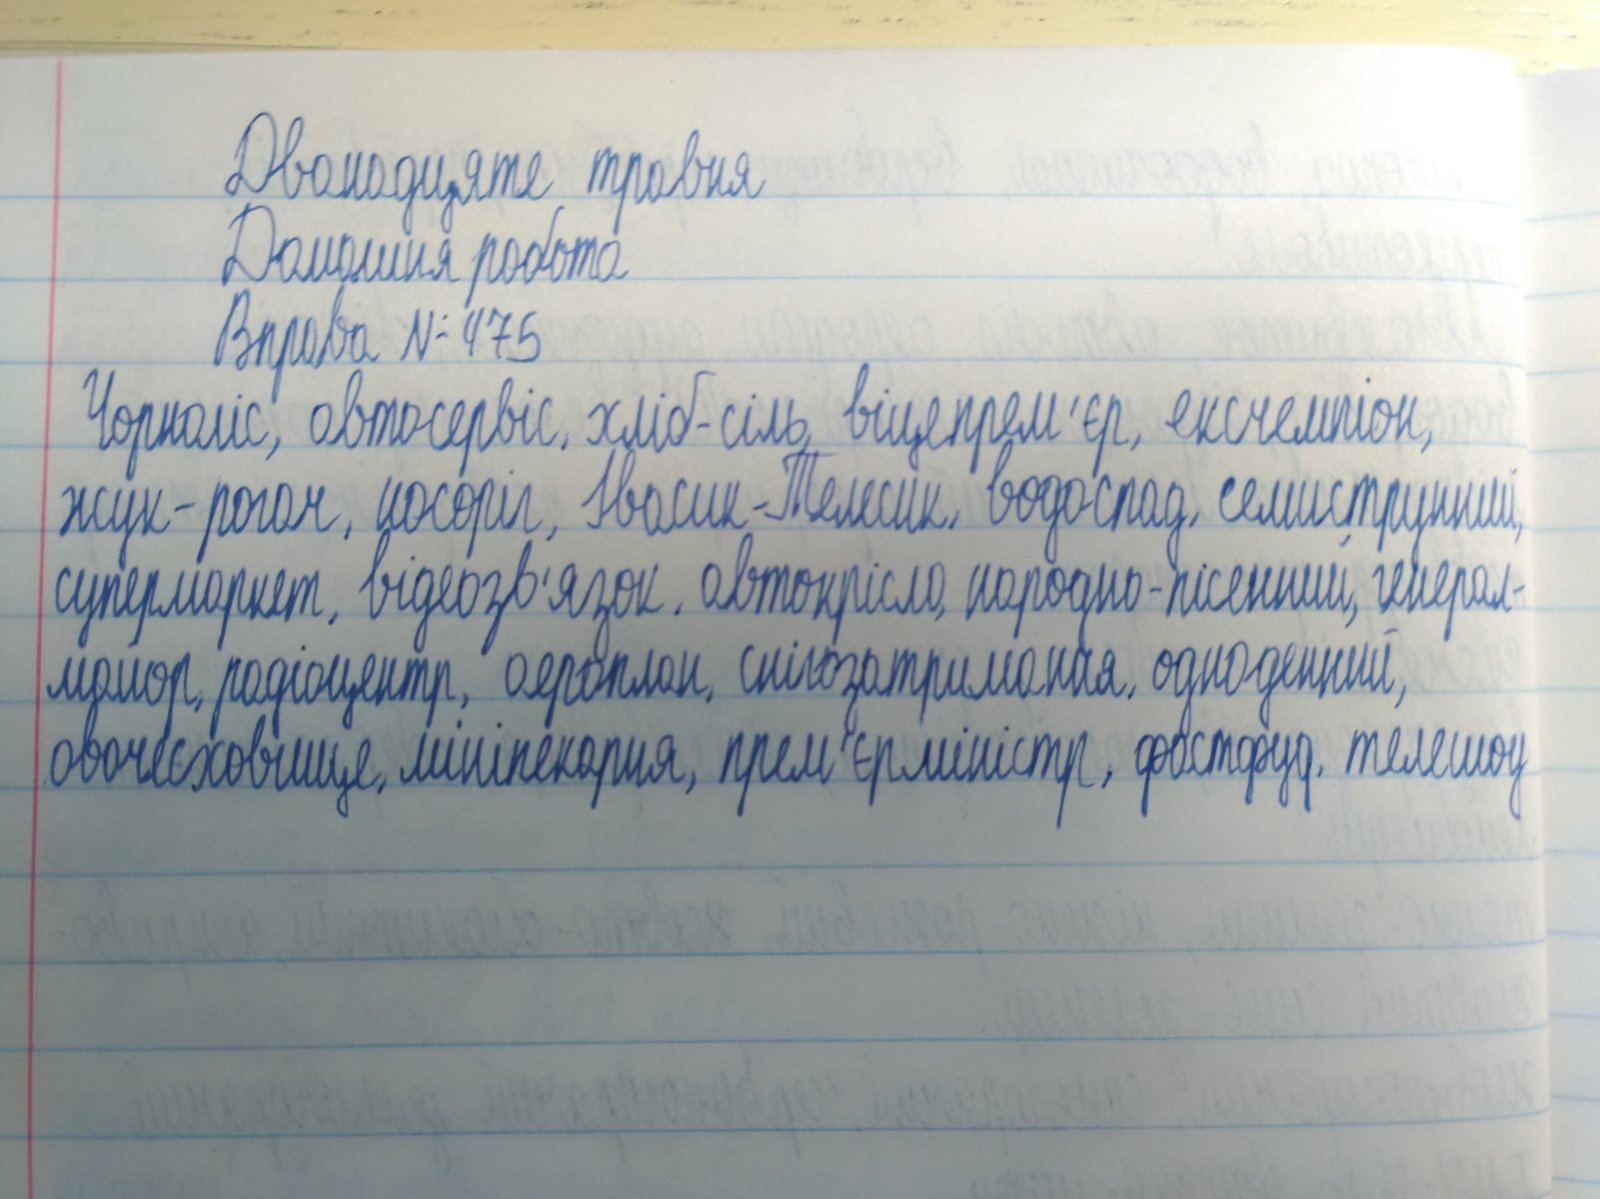 Дванадцяте травня
Домашня робота
Вправа №475
Чорноліс, автосервіс, хліб-сіль, віцепрем'єр, ексчемпіон,
жук-рогач, носоріг, Івасик-Телесик, водоспад, семиструнний,
супермаркет, відеозв'язок, автокрісло, народно-пісенний, генерал-
майор, радіоцентр, аероплан, снігозатримання, одноденний,
овочесховище, мініпекарня, прем'єрміністр, фастфуд, телешоу